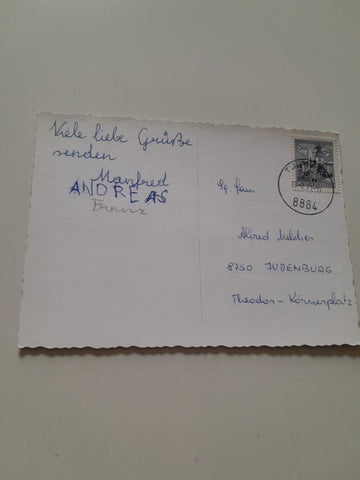 Viele liebe Grüße
senden
Manfred
ANDREAS
Franz
Alfred
8750 JUDENBURG
Theodor-Körnerplatz
8864